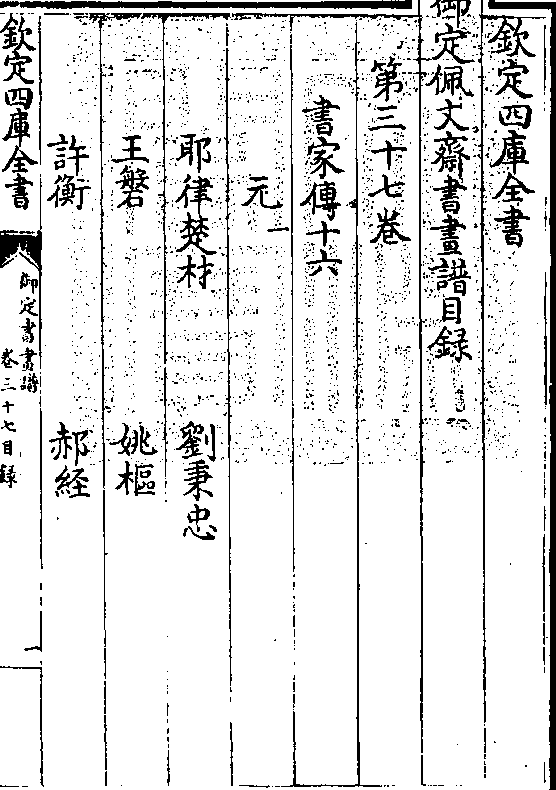 欽定四庫全書
御定佩文齋書畫譜目録
第三十七卷
書家傳十六
元一
耶律楚材　劉秉忠
王磐　姚樞
許衡　郝経
欽定四庫全書
御定書畫譜
卷三十七目録
一